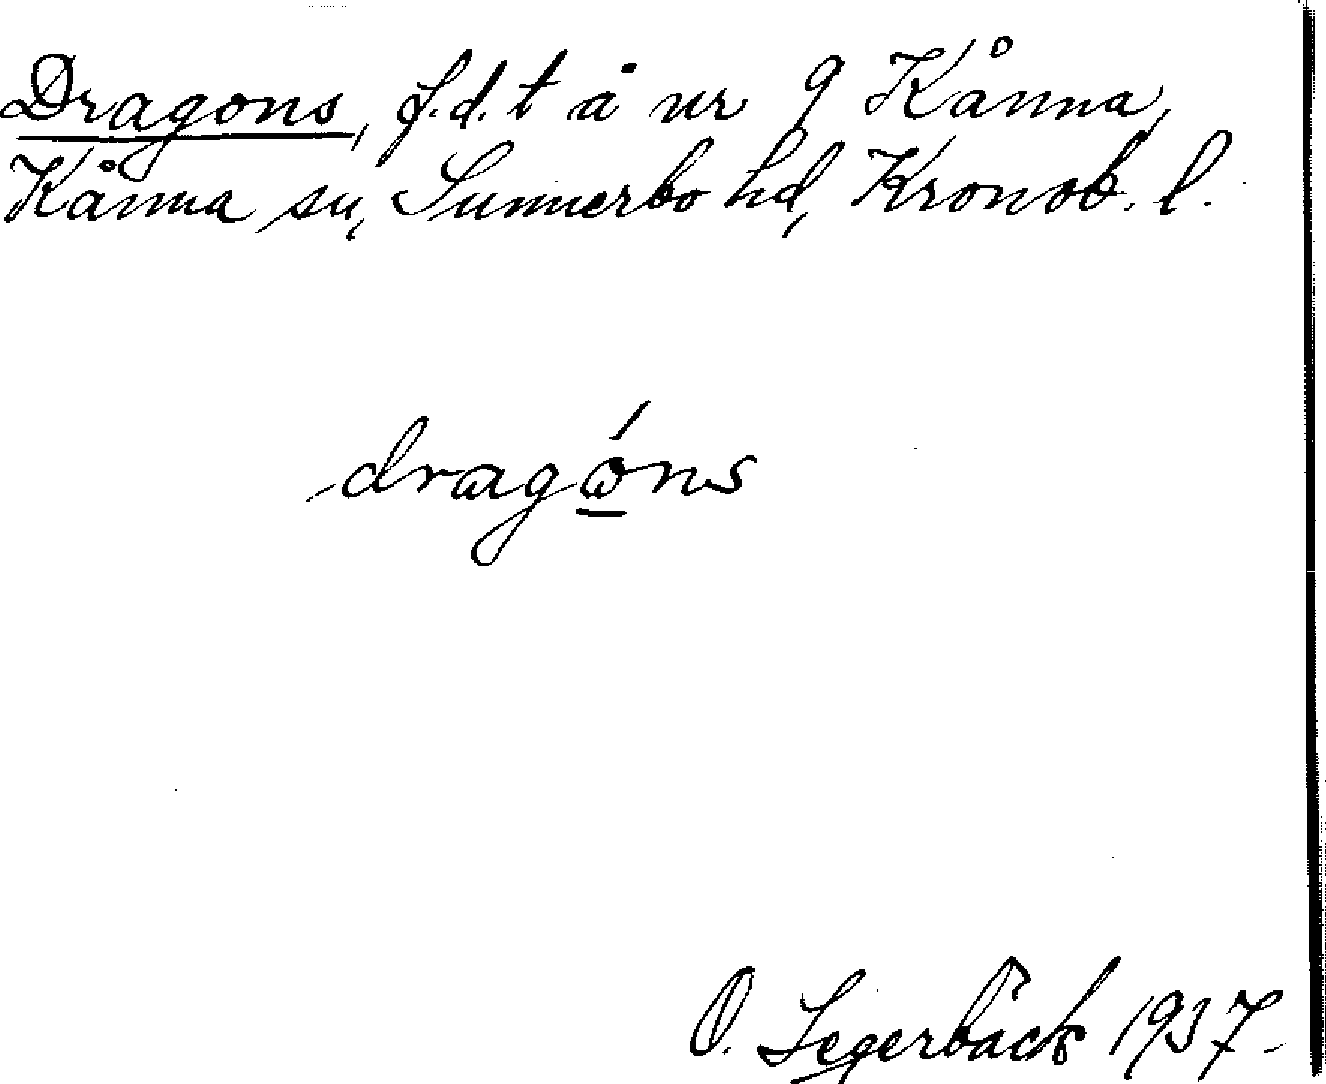 Dragons, f.d. t å nr 9 Kånna,
Kånna sn, Sunnerbo hd, Kronob. l.
dragóns
O. Segerbäck 1937